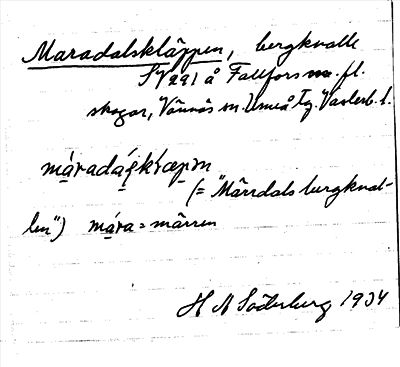 Maradalskläppen, bergknalle
SV 291 å Fallfors m. fl.
skogar, Vännäs sn. Umeå Tg. Västerb. l.
máradáɭskɭæpm
(= "Märrdalsbergknal-
len") mára = märren
H N Söderberg 1934